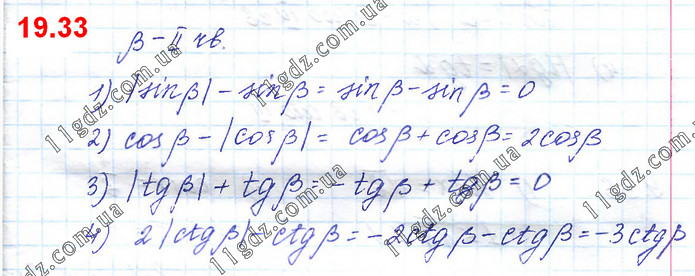 19.33
β – II чв.
1) |sin β| – sin β = sin β – sin β = 0
2) cos β – |cos β| = cos β + cos β = 2cos β
3) |tg β| + tg β = – tg β + tg β = 0
4) 2|ctg β| – ctg β = – 2ctg β – ctg β = – 3ctg β
11gdz.com.ua
11gdz.com.ua
11gdz.com.ua
11gdz.com.ua